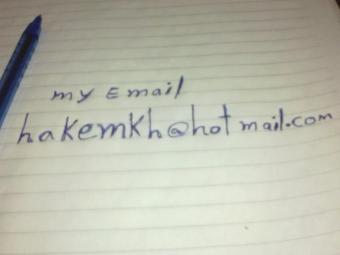 my Email
hakemkh@hotmail.com